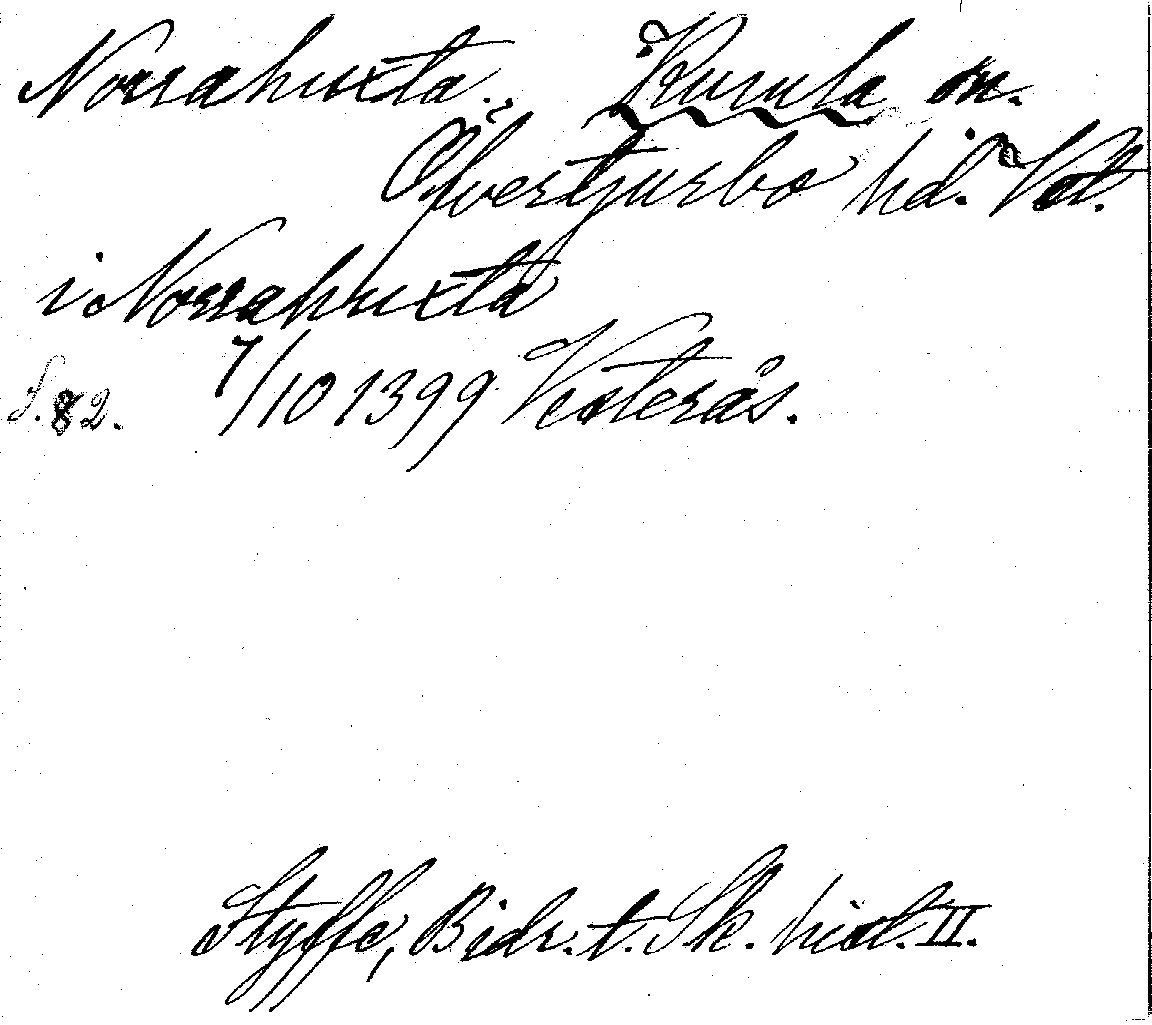 Norrahuxta. Kumla sn.
Öfvertjurbo hd. Vstl.
i Norrahuxta
S. 82. 7/10 1399 Vesterås.
Styffe, Bidr. t. Sk. hist. II.